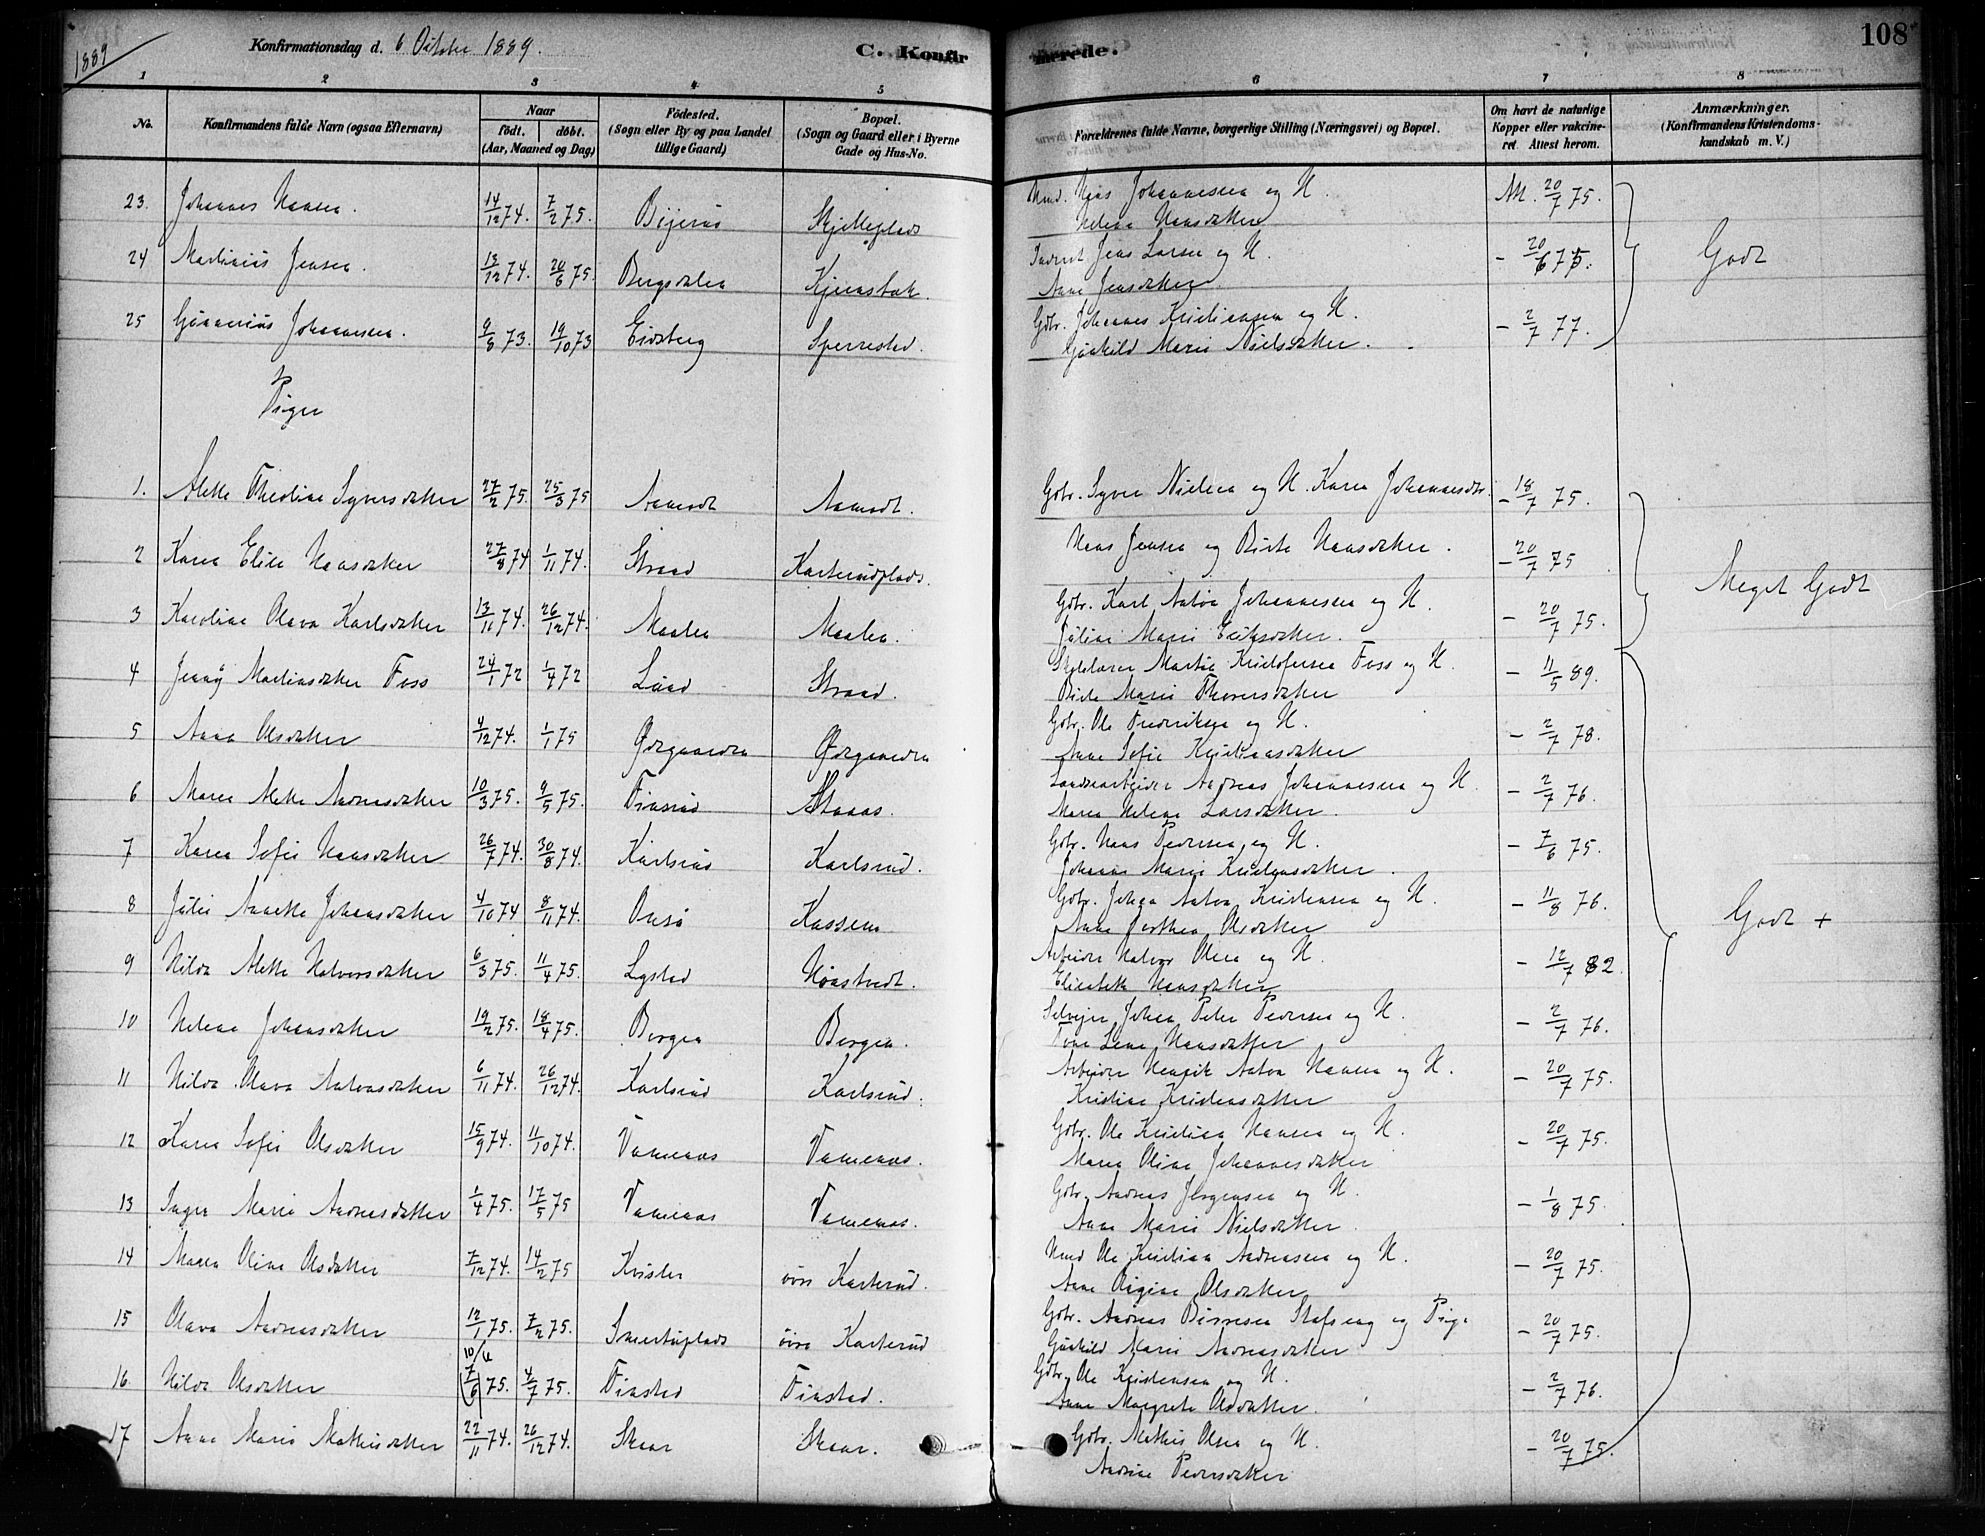 1889
Konfirmationsdag d. 6 October 1889.
C. Konfirmerede.
108
1 2 3 4 5 6 7 8
No.
Konfirmandens fulde Navn (ogsaa Efternavn)
Naar
födt. döbt.
(Aar, Maaned og Dag)
Födested.
(Sogn eller By og paa Landet
tillige Gaard)
Bopæl.
(Sogn og Gaard eller i Byerne
Gade og Hus-No.
Forældrenes fulde Navne, borgerlige Stilling (Næringsvei) og Bopæl.
Om havt de naturlige
Kopper eller vakcine-
ret. Attest herom.
Anmærkninger.
(Konfirmandens Kristendoms-
kundskab m. V.)
23. Johannes Hansen. 14/12 74. 7/2 75. Skjelleplads Hans Johannesen og H. 20/7 75.
Helene Hansdatter
24 Martinius Jensen. 13/12 74. 20/6 75. Bergsdalen Jens Larsen og H. - 20/6 75. Godt
Anne Jensdatter
25 Gunnerius Johannesen. 9/8 73. 19/10 73 Eidsberg Sperrestad. Gdbr. Johannes Kristiansen og H. - 2/7 77.
Gunhild Marie Nielsdatter.
Piger
1. Alette Theoline Syversdatter 27/2 75. 25/3 75 Aamodt Aamodt. Gdbr. Syver Nielsen og H. Karen Johannesdtr. - 18/7 75.
2 Karen Elise Hansdatter 27/8 74 1/11 74. Strand Karterudplads. Hans Jensen og Birte Hansdatter. - 20/7 75
Meget Godt
3 Karoline Olava Karlsdatter 13/11 74. 26/12 74. Maalen Maalen. Gdbr. Karl Anton Johannesen og H. - 20/7 75.
Juline Marie Eriksdatter.
4 Jenny Martinsdatter Foss 24/1 72 1/4 72 Lund Strand. Skolelærer Martin Kristofersen Foss og H. - 11/5 89.
Birte Marie Thorersdatter
5 Anna Olsdatter 4/12 74. 1/1 75 Ørgaarden Ørgaarden Gdbr. Ole Fredriksen og H. - 2/7 78.
Anne Sofie Kristiansdatter
6 Maren Alette Andreasdatter 10/3 75. 9/5 75. Finsrud Andreas Johannesen og H. - 2/7 76.
Maren Helene Larsdatter.
7 Karen Sofie Hansdatter 26/7 74. 30/8 74. Karlsrud Karlsrud. Gdbr. Hans Pedersen og H. - 7/6 75.
Johanne Marie Kristensdatter.
8 Julie Annette Johansdatter 4/10 74 8/11 74. Onsø Kassem Gdbr. Johan Anton Kristensen og H. - 11/8 76.
Godt +
Anne Dorthea Olsdatter
9 Hilda Alette Halvorsdatter 6/3 75. 11/4 75. Lystad Arbeider Halvor Olsen og H. - 12/7 82.
Elisabeth Hansdatter
10 Helene Johansdatter 19/2 75. 18/4 75. Borgen Borgen. Selveier Johan Peter Pedersen og H. - 2/7 76.
Lene Hansdatter
11 Hilda Olava Antonsdatter 6/11 74. 26/12 74. Karlsrud Karlsrud. Arbeider Henrik Anton Hansen og H. - 20/7 75.
Kristine Kristensdatter
12 Karen Sofie Olsdatter 15/9 74. 11/10 74. Vammenæs Vammenæs. Gdbr. Ole Kristian Hansen og H. - 20/7 75.
Maren Oline Johannesdatter
13 Inger Marie Andreasdatter 1/4 75. 17/5 75 Vammenæs Vammenæs. Gdbr. Andreas Jörgensen og H. - 1/8 75.
Anne Marie Nielsdatter
14 Maren Oline Olsdatter 7/12 74. 14/2 75 Kvisler övre Karterud. Hmd Ole Kristian Andreasen og H. - 20/7 75.
Anne Olsdatter
15 Olava Andreasdatter 12/1 75. 7/2 75. övre Karterud Gdbr. Andreas og Pige - 20/7 75.
Gunhild Marie Andreasdatter
16 Hilda Olsdatter 10/6 (7/6) 75. 4/7 75. Finstad Finstad. Gdbr. Ole Kristensen og H. - 2/7 76.
Anne Margrete Olsdatter.
17 Anne Marie Mathisdatter 22/11 74. 26/12 74. Skaar Skaar. Gdbr. Mathis Olsen og H. - 20/7 75.
Andrine Pedersdatter